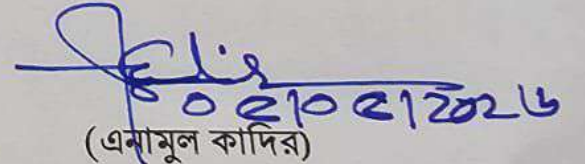 ০৫/০৫/২০২৬
(এনামুল কাদির)